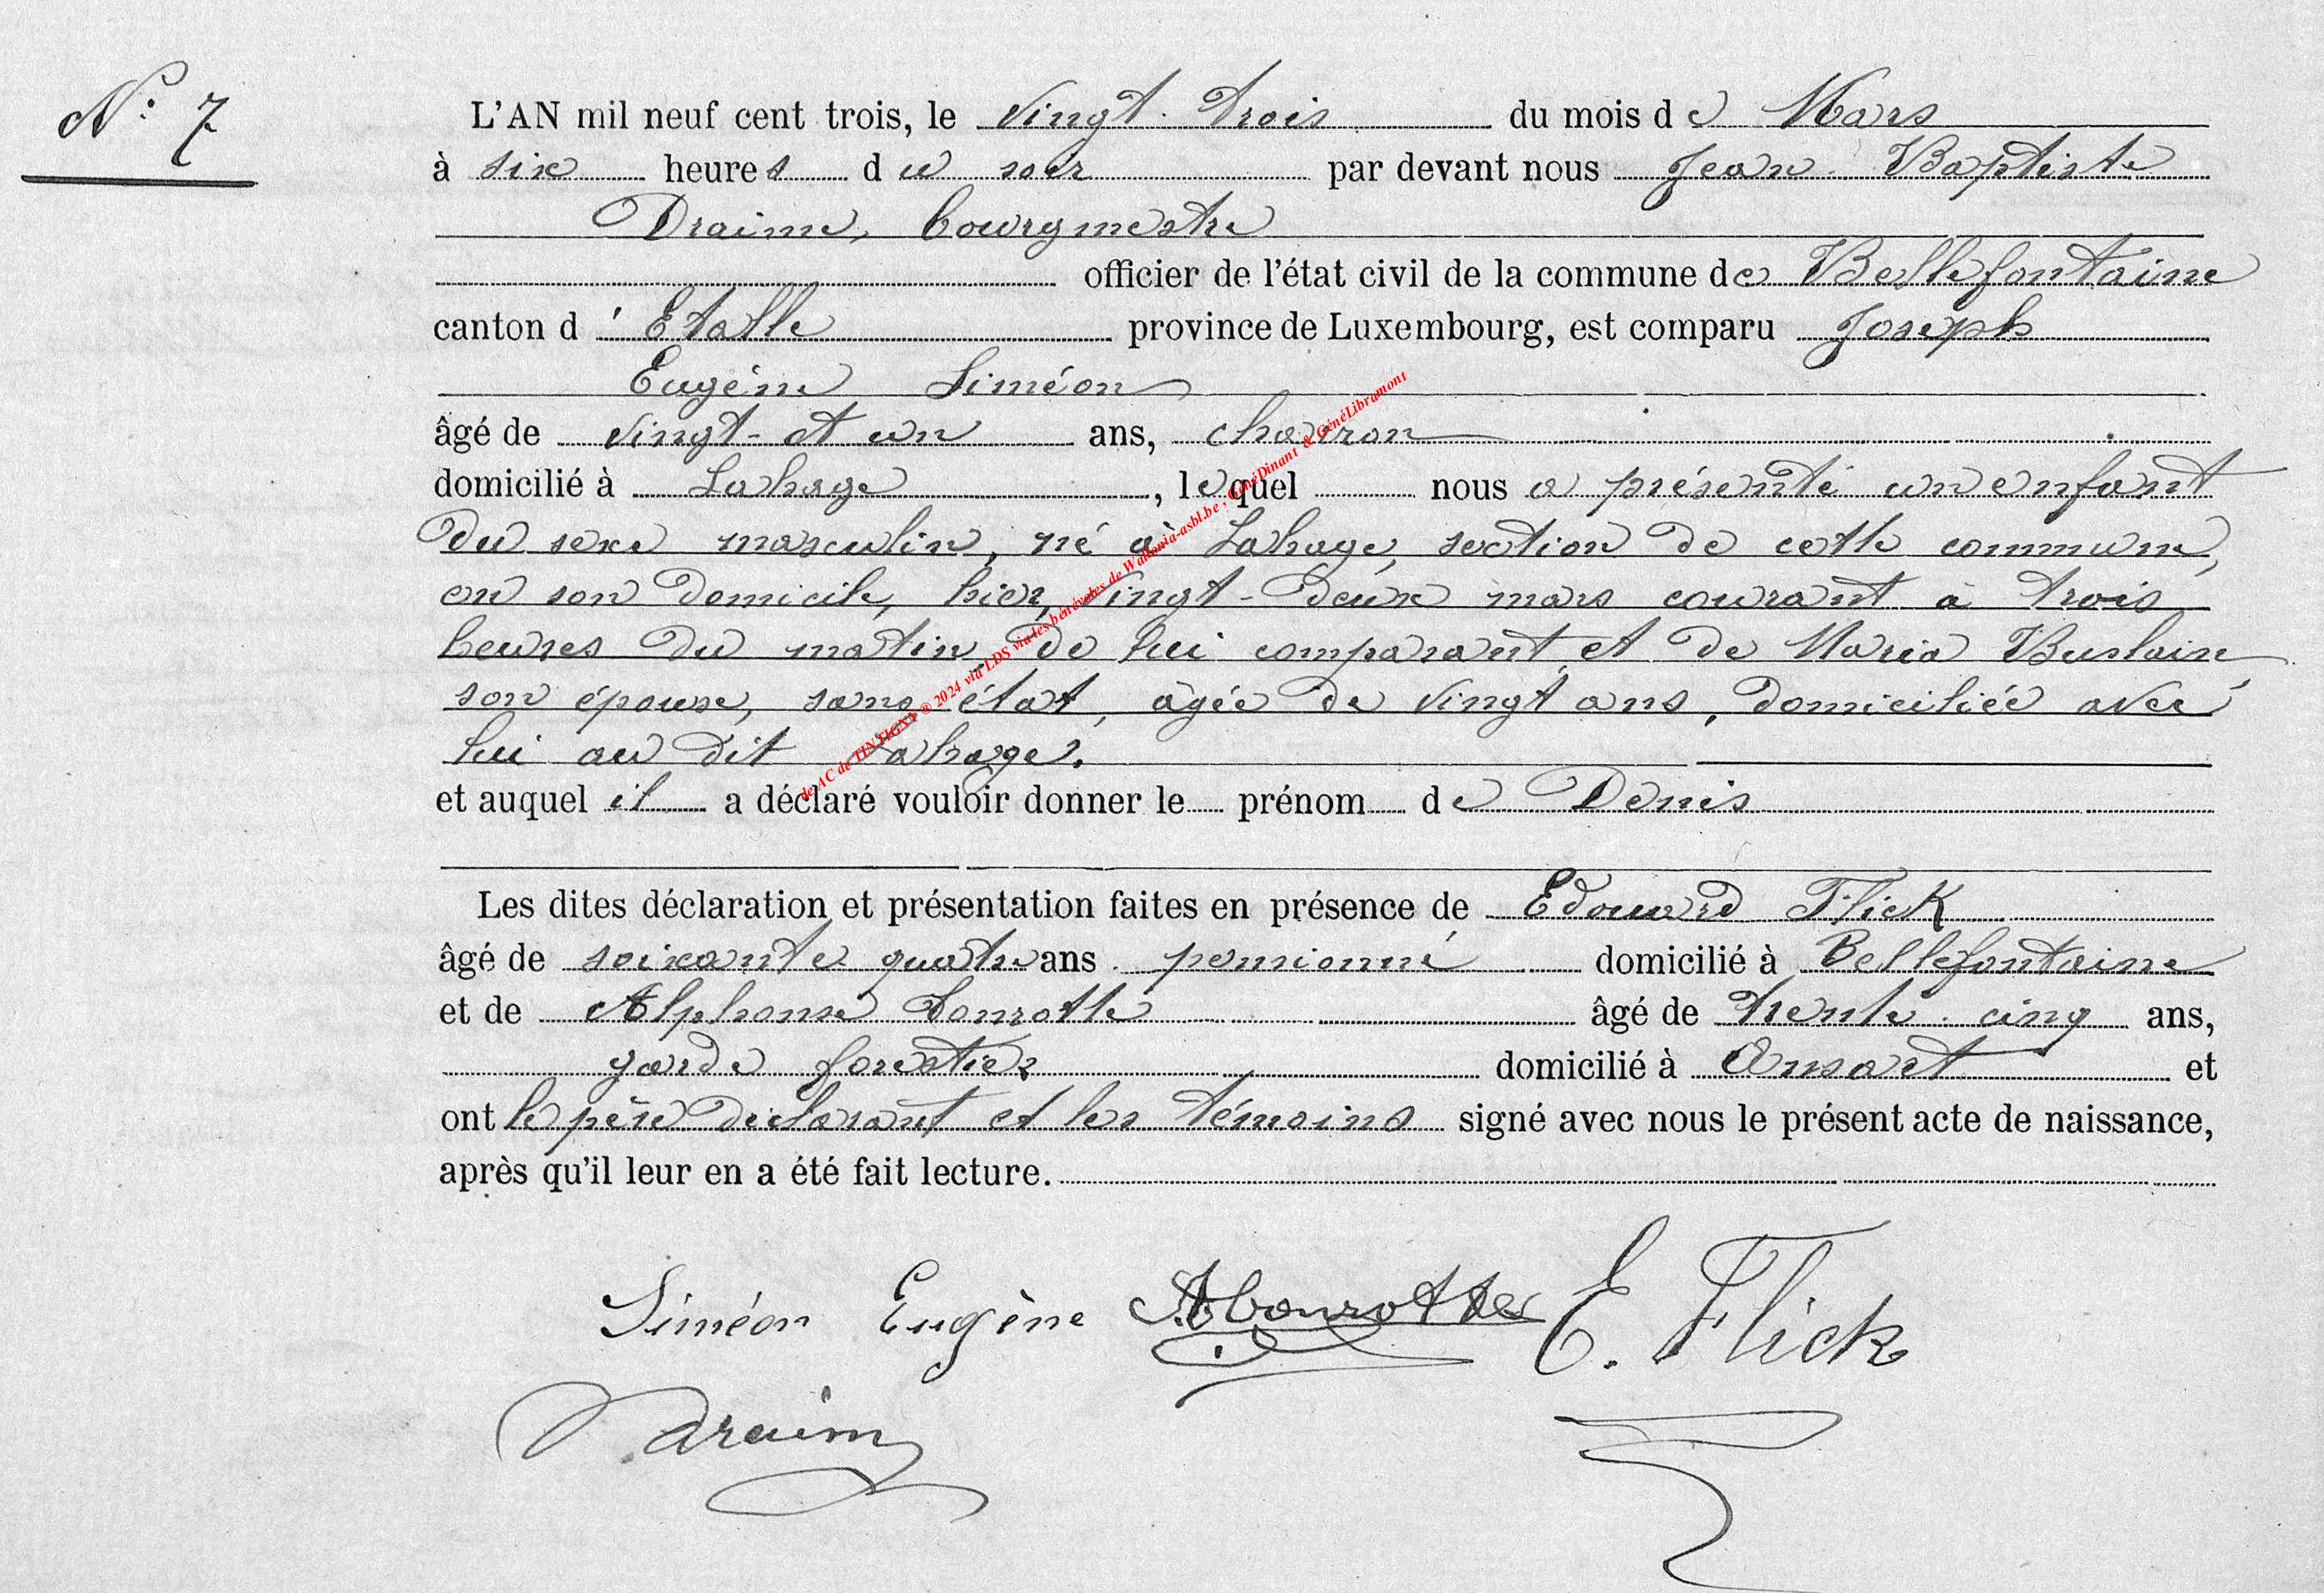 N° 7
L'AN mil neuf cent trois, le vingt-trois du mois de Mars
à six heures du soir par devant nous Jean-Baptiste
Draime, bourgmestre
officier de l'état civil de la commune de Bellefontaine
canton d'Etalle province de Luxembourg, est comparu Joseph
Eugène Siméon
âgé de vingt-et un ans, charron
domicilié à Lahage, lequel nous a présenté un enfant
du sexe masculin, né à Lahage, section de cette commune,
en son domicile, hier, vingt-deux mars courant à trois
heures du matin, de lui comparant et de Maria Buslain
son épouse, sans état, âgée de vingt ans, domiciliée avec
lui au dit Lahage.
et auquel il a déclaré vouloir donner le prénom de Denis
Les dites déclaration et présentation faites en présence de Edouard Flick
âgé de soixante quatre ans pensionné domicilié à Bellefontaine
et de Alphonse Bonrotte âgé de trente-cinq ans,
garde forestier domicilié à Ansart et
ont le père déclarant et les témoins signé avec nous le présent acte de naissance,
après qu'il leur en a été fait lecture.
Siméon Eugène ABonrotte E. Flick
Draime
de AC de TINTIGNY © 2024 via LDS via les bénévoles de Wallonia-asbl.be, GénéDinant & GénéLibramont